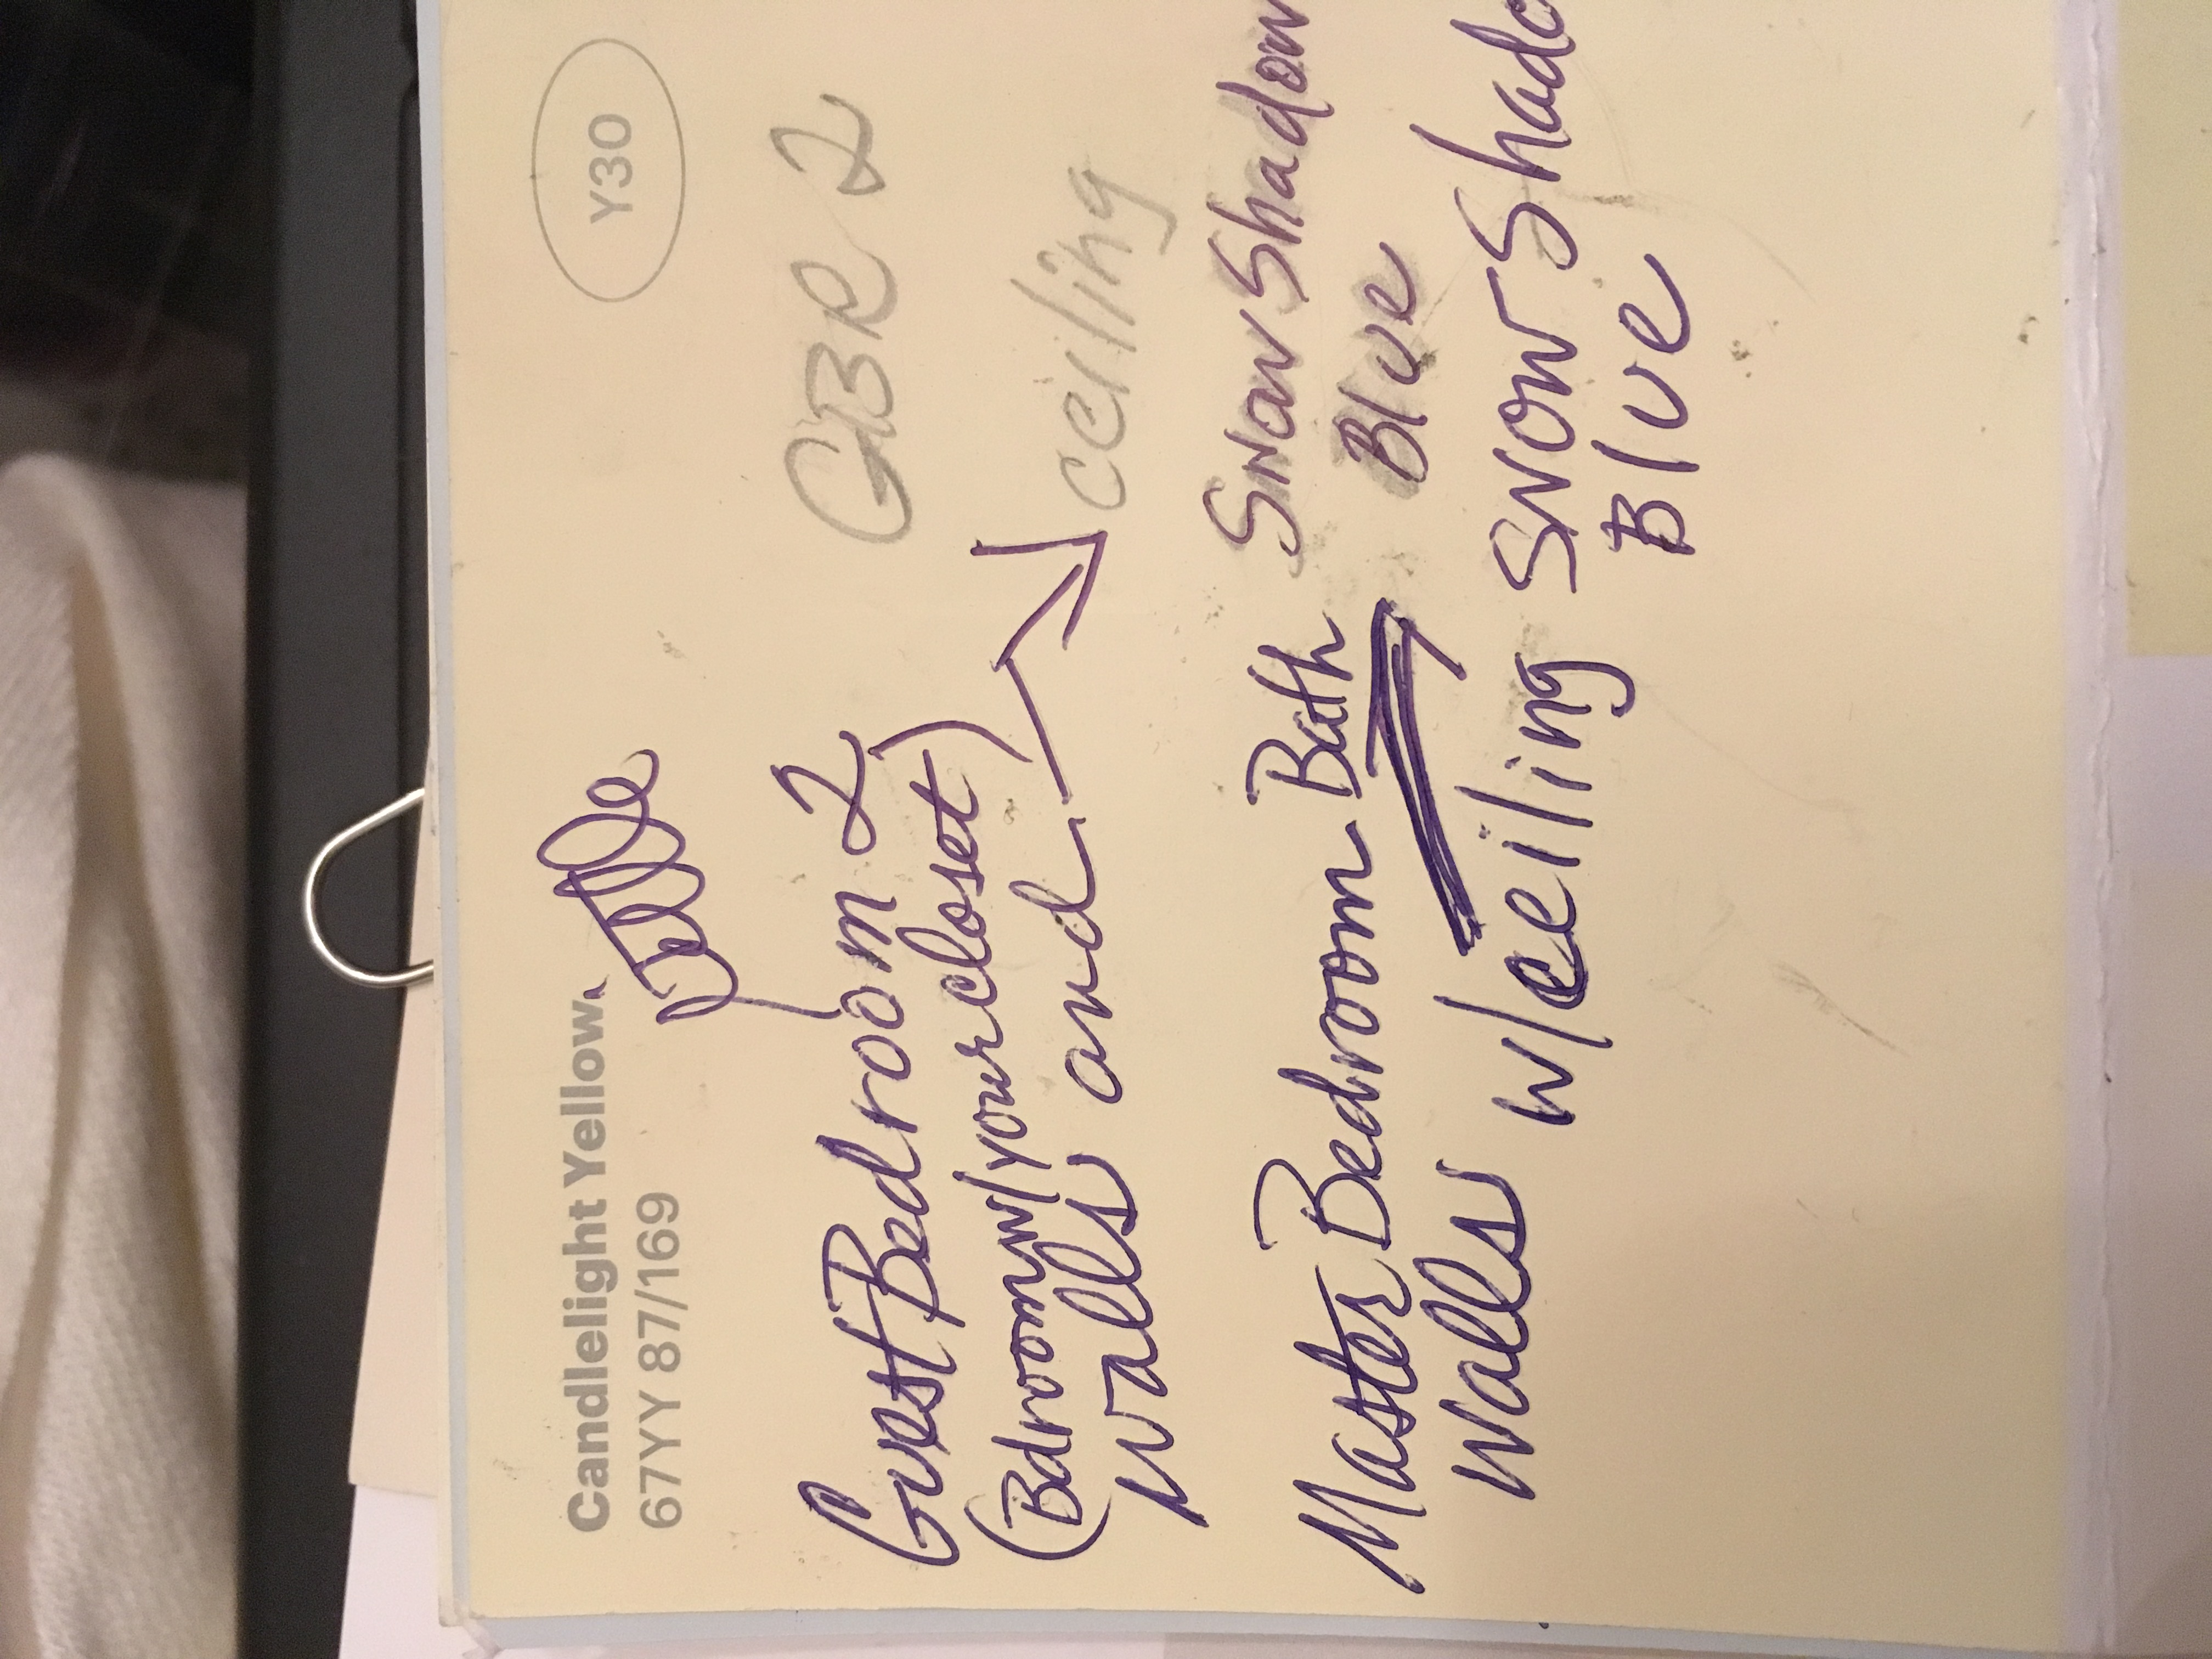 Candlelight Yellow.
67YY 87/169
Y30
Guest Bedroom 2
GBR 2
(Bdroom w/your closet)
walls and
ceiling
Master Bedroom Bath Snow Shadow
Blue
walls w/ceiling Snow Shado
Blue